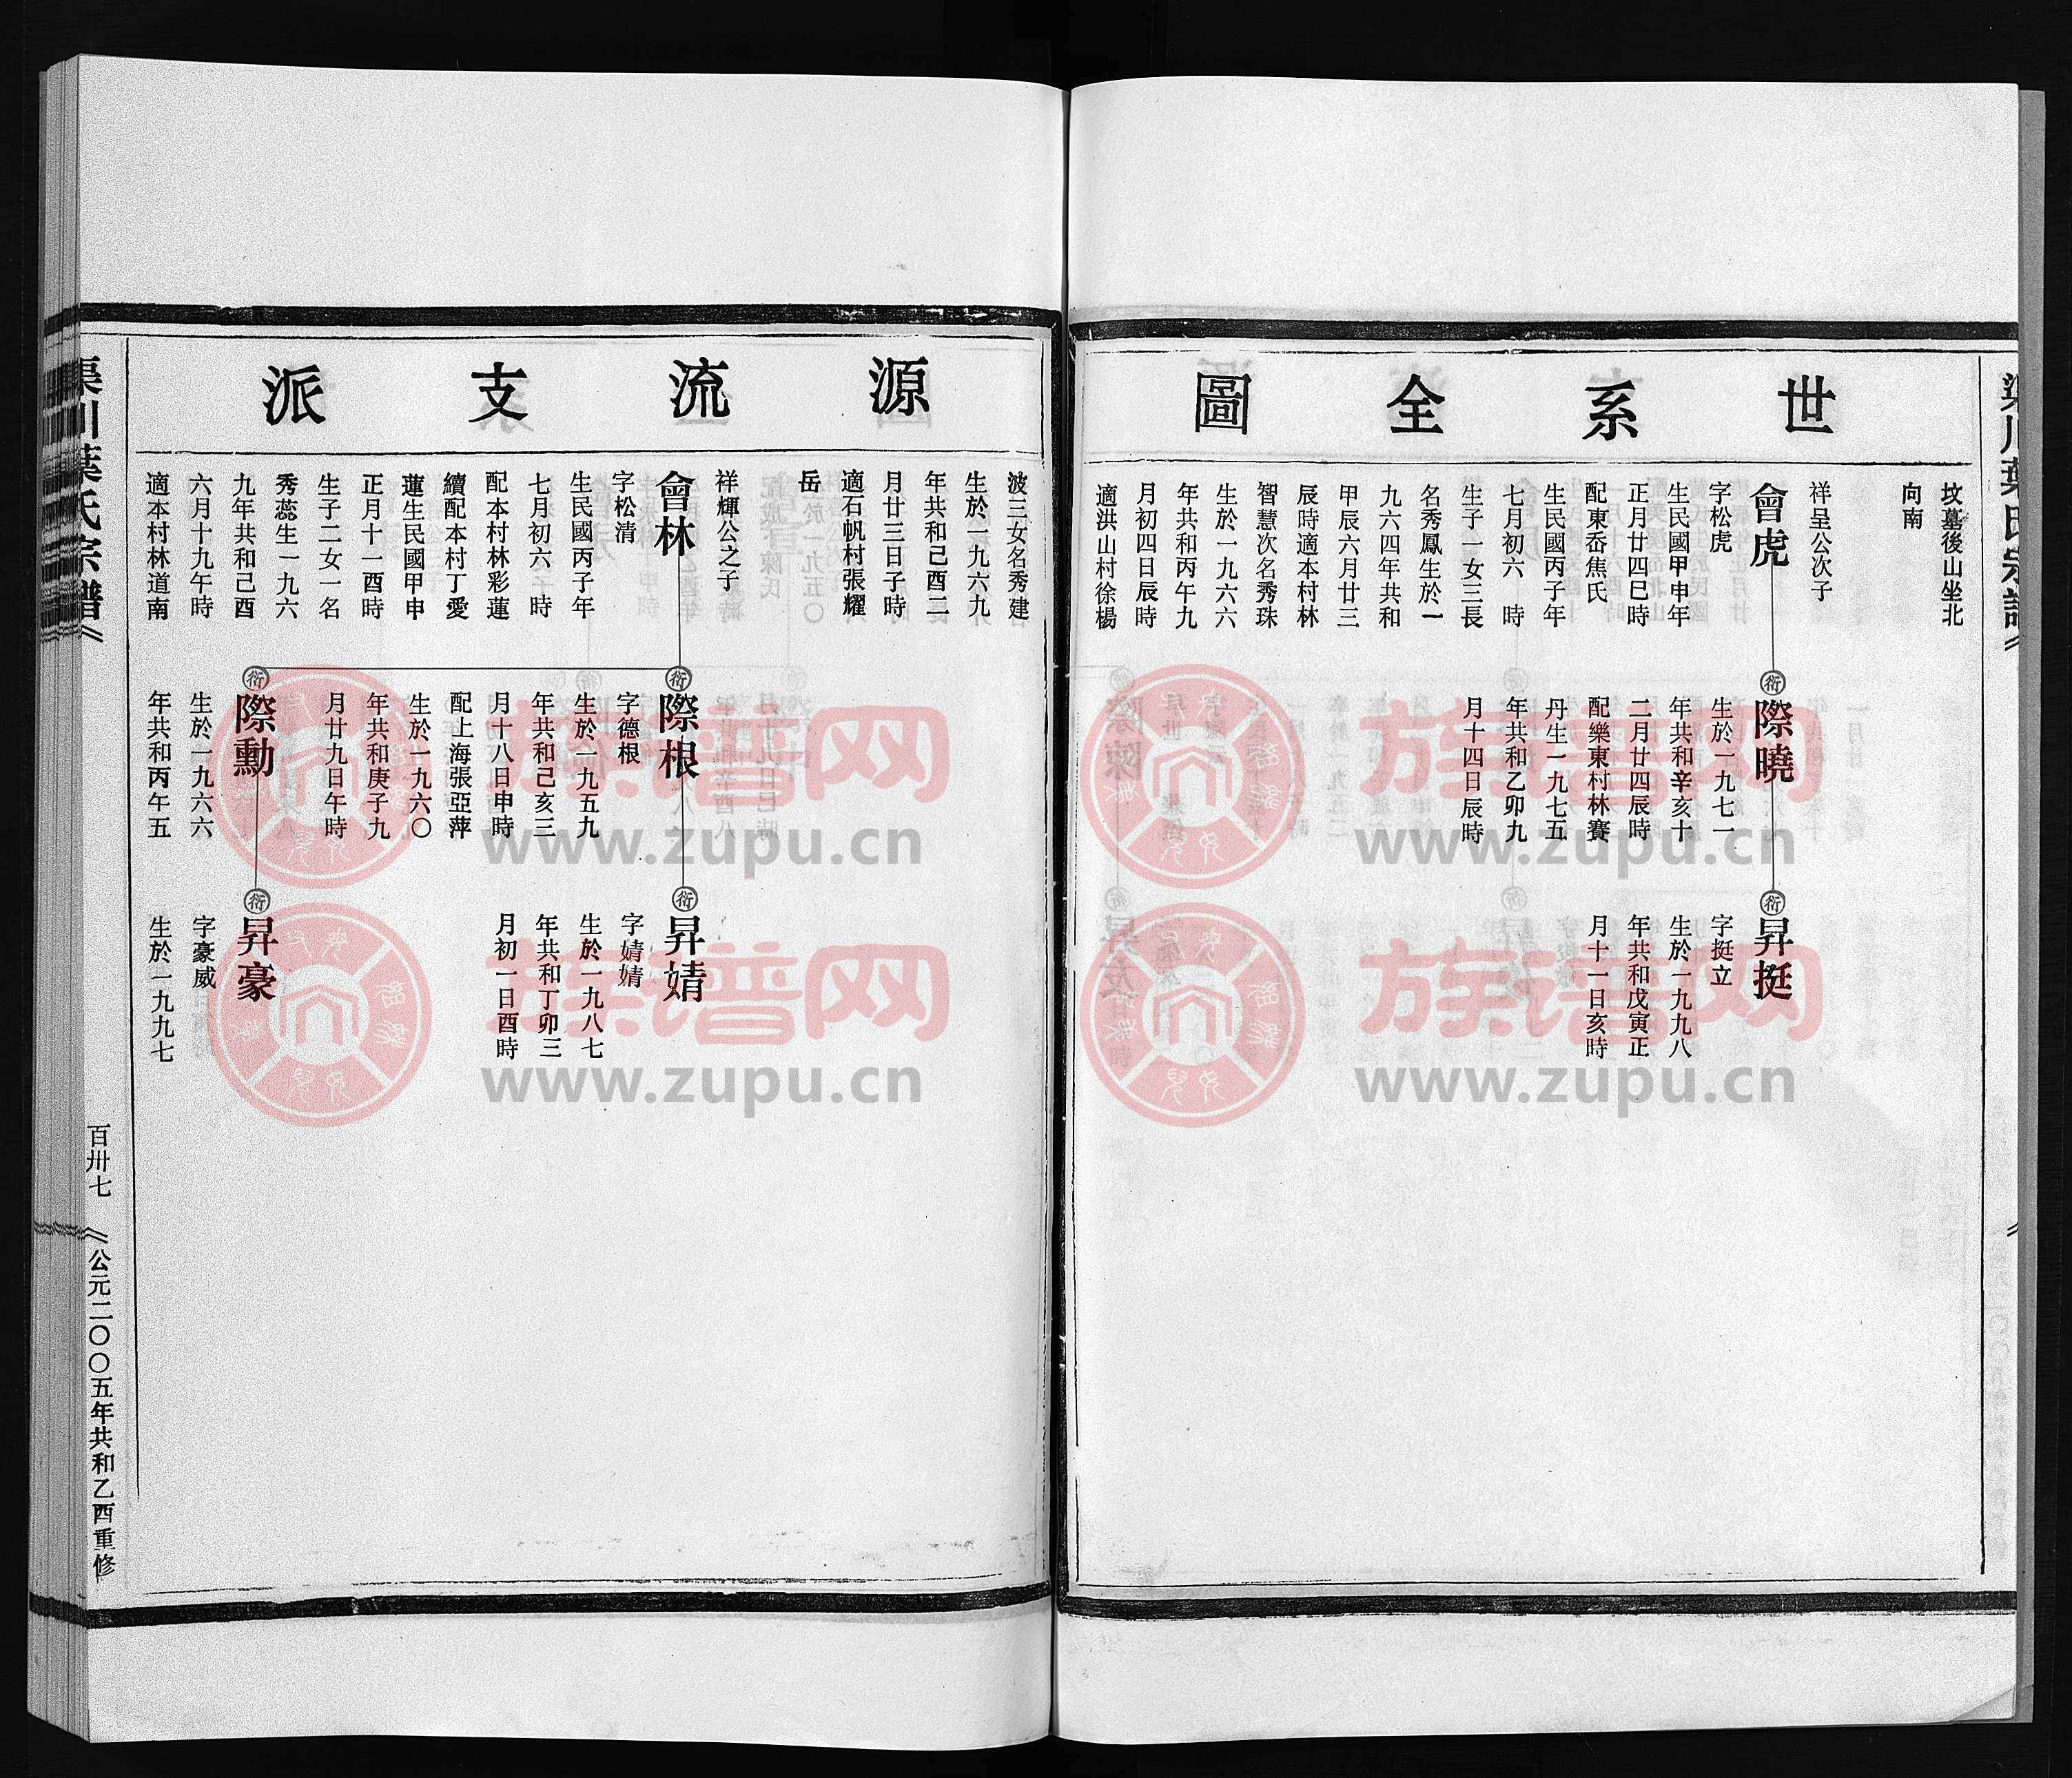 世系全圖
坟墓後山坐北
向南
祥呈公次子
會虎
字松虎
生民國甲申年
正月廿四巳時
配東岙焦氏
生民國丙子年
七月初六 時
生子一女三長
名秀鳳生於一
九六四年共和
甲辰六月廿三
辰時適本村林
智慧次名秀珠
生於一九六六
年共和丙午九
月初四日辰時
適洪山村徐楊
衍
際曉
生於一九七一
年共和辛亥十
二月廿四辰時
配樂東村林賽
丹生一九七五
年共和乙卯九
月十四日辰時
衍
昇挺
字挺立
生於一九九八
年共和戊寅正
月十一日亥時
源流支派
波三女名秀建
生於一九六九
年共和己酉二
月廿三日子時
適石帆村張耀
岳
祥輝公之子
會林
字松清
生民國丙子年
七月初六 時
配本村林彩蓮
續配本村丁愛
蓮生民國甲申
正月十一酉時
生子二女一名
秀蕊生一九六
九年共和己酉
六月十九午時
適本村林道南
衍
際根
字德根
生於一九五九
年共和己亥三
月十八日申時
配上海張亞萍
生於一九六〇
年共和庚子九
月廿九日午時
衍
際勳
生於一九六六
年共和丙午五
衍
昇婧
字婧婧
生於一九八七
年共和丁卯三
月初一日酉時
衍
昇豪
字豪威
生於一九九七
渠川葉氏宗譜
百卅七
公元二〇〇五年共和乙酉重修
族谱网
www.zupu.cn
族谱网
www.zupu.cn
族谱网
www.zupu.cn
族谱网
www.zupu.cn